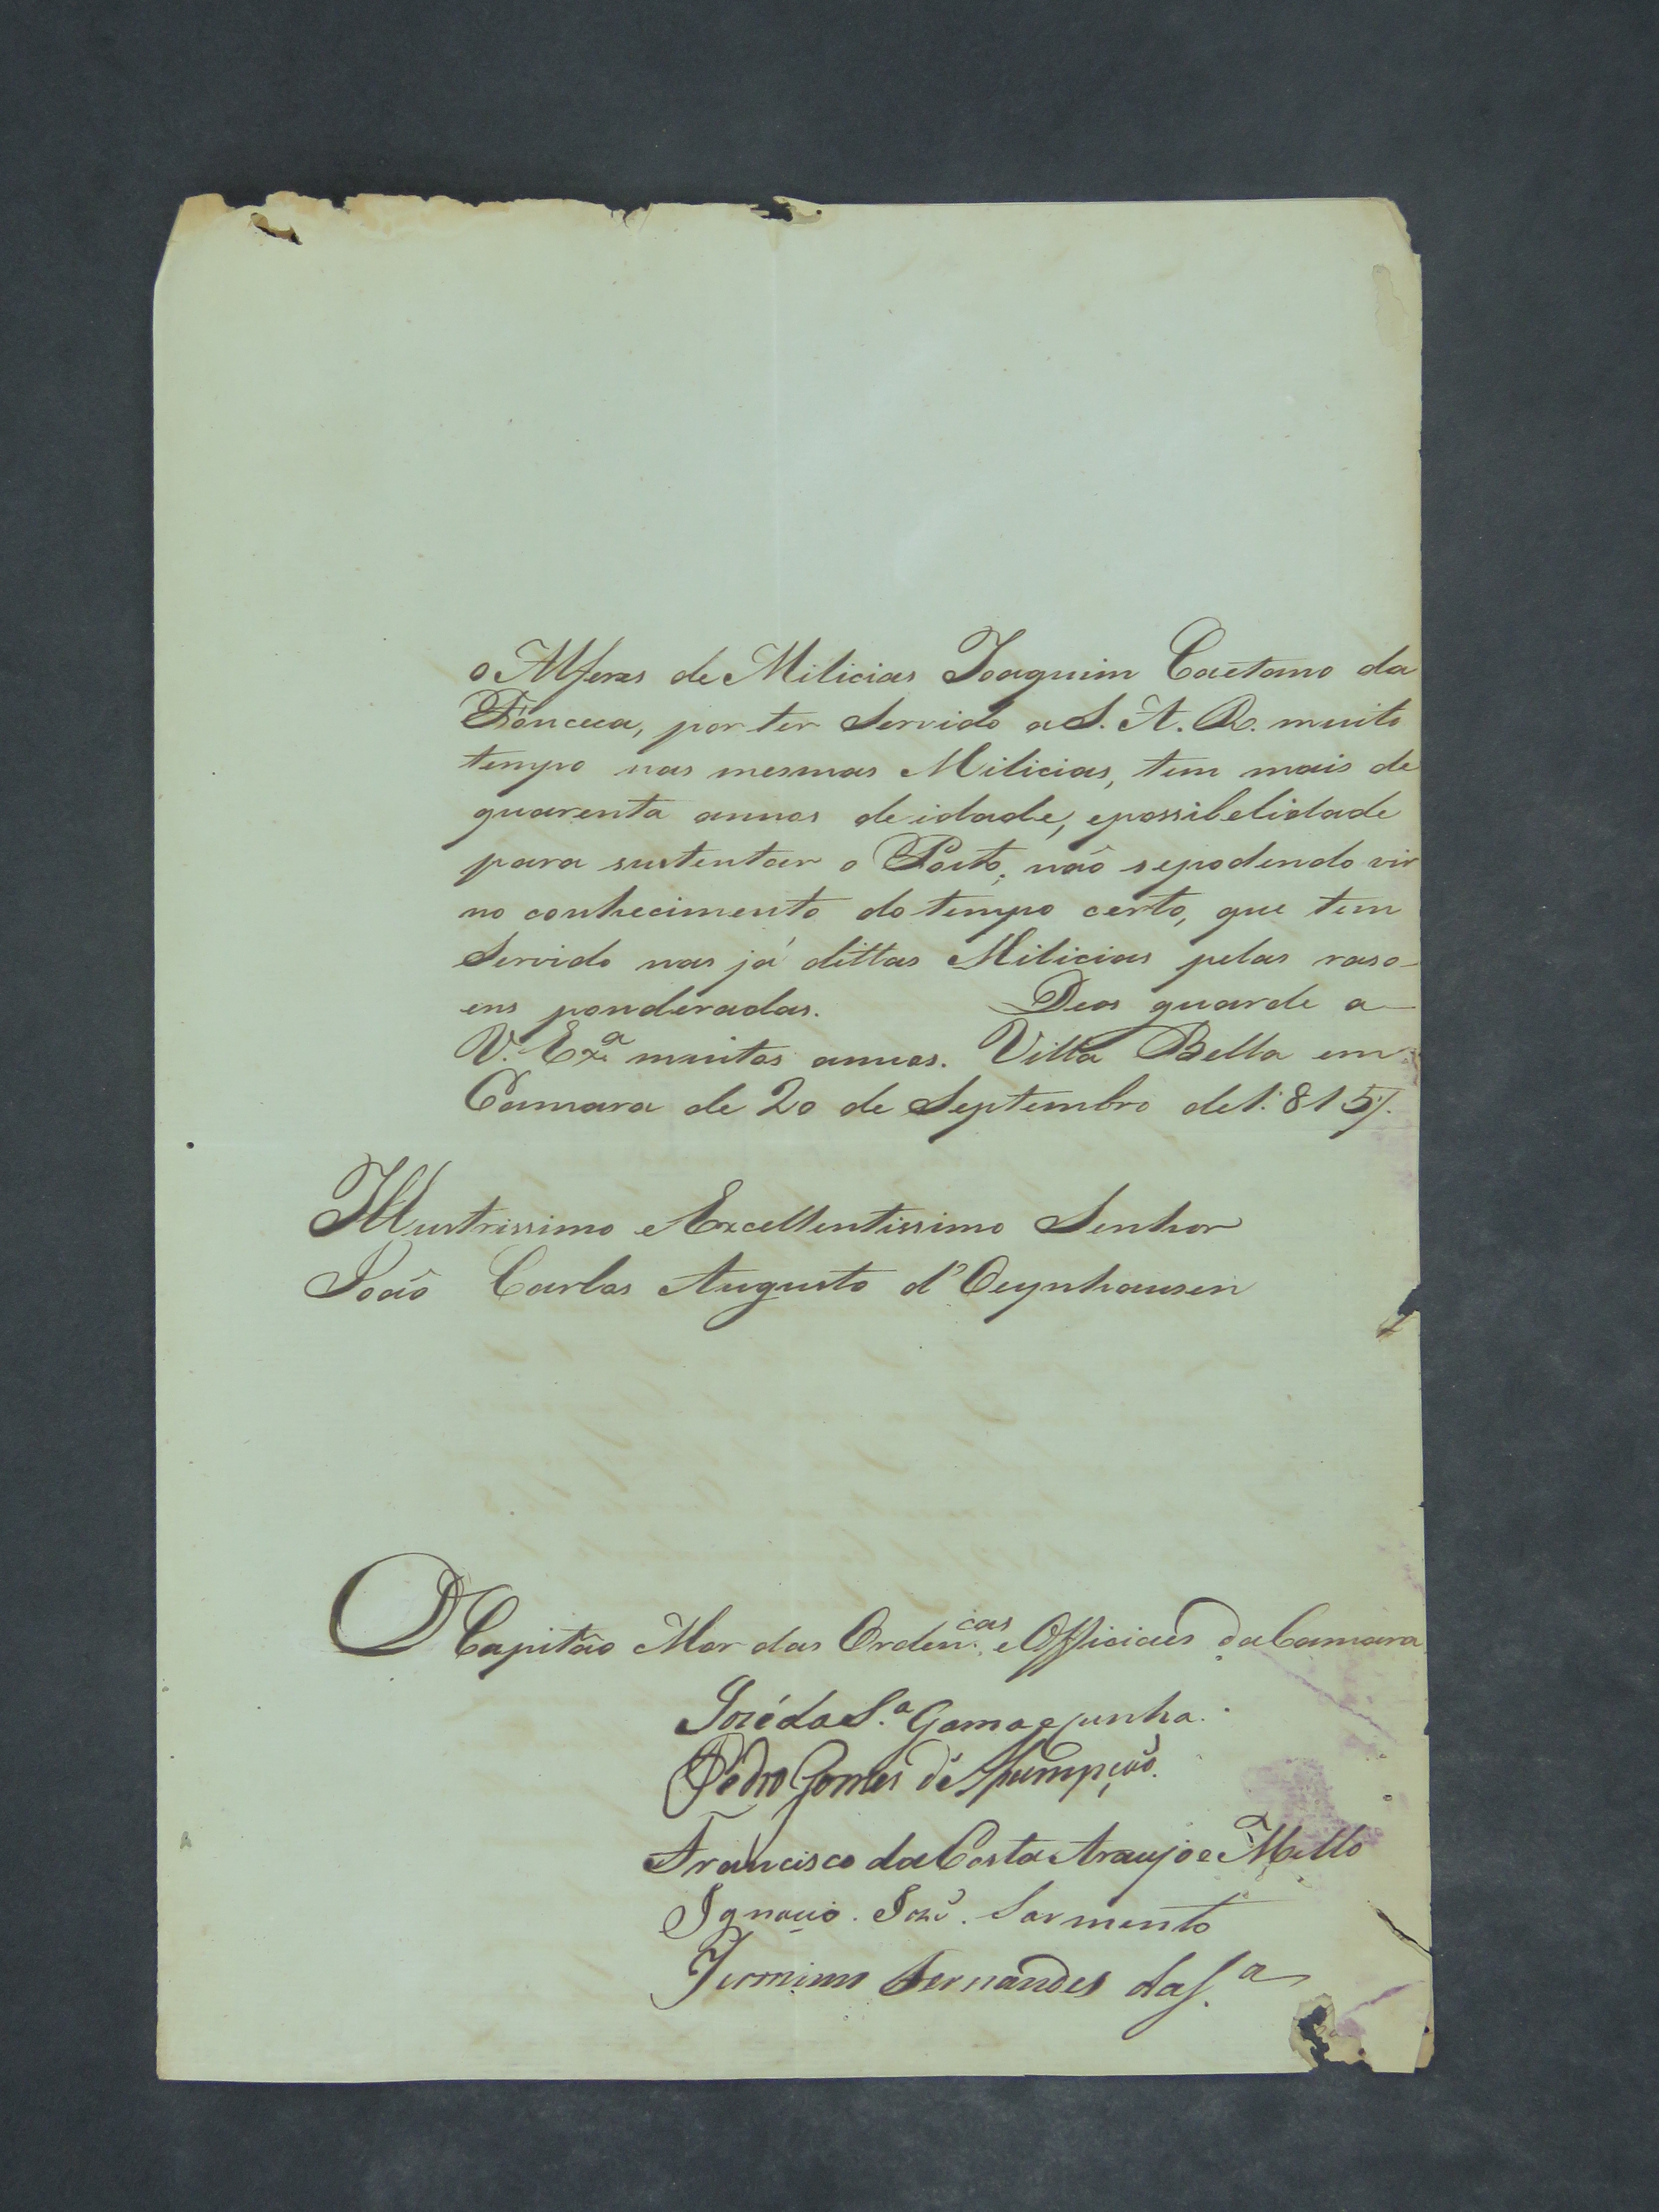 o Alferes de Milicias Joaquim Caetano da
Fonceca, por ter Servido a S. A. R. muito
tempo nas mesmas Milicias, tem mais de
quarenta annos de idade, epossibelidade
para sustentar o Posto; naõ sepodendo vir
no conhecimento do tempo certo, que tem
Servido nas já dittas Milicias pelas raso-
ens ponderadas. Deos guarde a
V. Exª muitos annos. Villa Bella em
Camara de 20 de Septembro de 1:815,,
Illustrissimo e Excellentissimo Senhor
Joaõ Carlos Augusto d'Oeynhausen
O Capitão Mor das Ordenças e Officiaes da Camara
Jozé da Sª Gama e Cunha.
Pedro Gomes de Asumpçaõ.
Francisco da Costa Araujo e Mello
Ignacio Jozé Sarmento
Jeronimo Fernandes da Sª